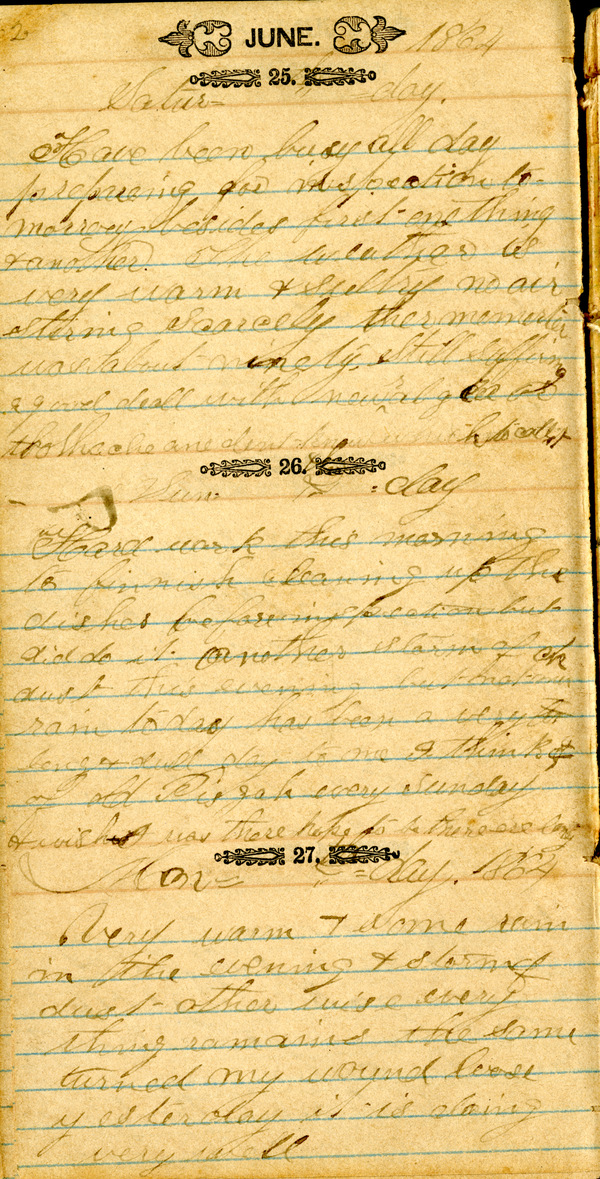 2
JUNE. 1864
25.
Satur= =day.
Have been busy all day
prepairing for inspection to-
morrow besides first one thing
& another The weather is
very warm & sultry no air
stering scarcely thermometer
was about ninety. Still suffering
a good deall with newralgea or
toothache and dont know which to call it
26.
Sun= =day
Hard work this morning
to finnish cleaning up the
dishes before inspection but
did do it another storm of
dust this evening but not much
rain to day has been a very
long & dull day to me I think
on old Pisgah every Sunday
& wish I was there hope to be there ere long
27.
Mon= =day. 1864
Very warm & some rain
in the evening & storm of
dust other wise every
thing remains the same
turned my wound loose
yesterday it is doing
very well